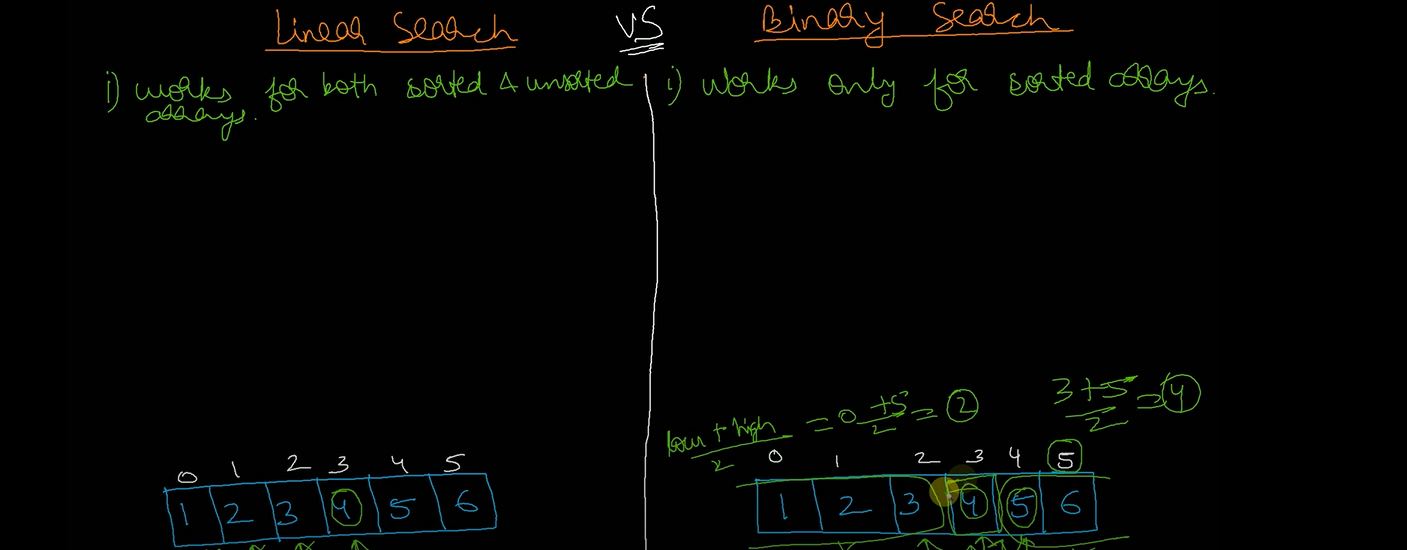 Linear Search VS Binary Search
i) works for both sorted & unsorted
arrays.
i) Works only for sorted arrays.
low + high / 2 = 0 + 5 / 2 = 2
3 + 5 / 2 = 4
0 1 2 3 4 5
1 2 3 4 5 6
0 1 2 3 4 5
1 2 3 4 5 6